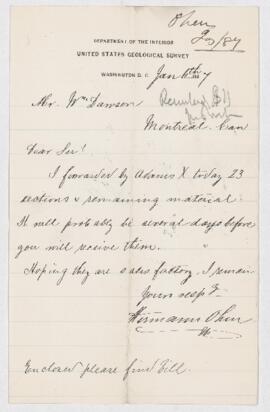 Ohm
23/87
DEPARTMENT OF THE INTERIOR
UNITED STATES GEOLOGICAL SURVEY
WASHINGTON D. C. Jan 11th 7
Mr. Wm Dawson
Montreal Can
Dear Sir!
I forwarded by Adams X. today 23
sections & remaining material
It will probably be several days before
you will receive them.
Hoping they are satesfactory. I remain
Yours respt
Hermann Ohm
Enclosed please find bill.